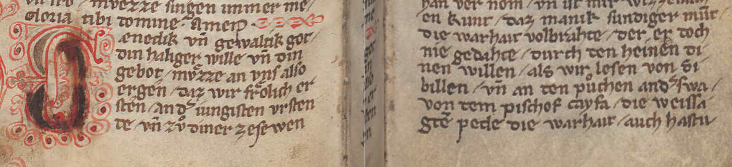 mvezze singen immer me
gloria tibi domine amen
Genedik vn̄ gewaltik got
din haliger wille vn̄ din
gebot mvzze an vns also
ergen daz wir frolich er
sten an dem iungisten vrsten
te vn̄ zv̊ diner zesewen
han ver nom vn̄ ist mir
en kunt daz manik sundiger mūt
die warhait volbrahte der er doch
nie gedahte durch den heinen di
nen willen als wir lesen von si
billen vn̄ an den puchen anderswa
von dem pischof cayfa die weissa
gte pede die warhait auch hastu